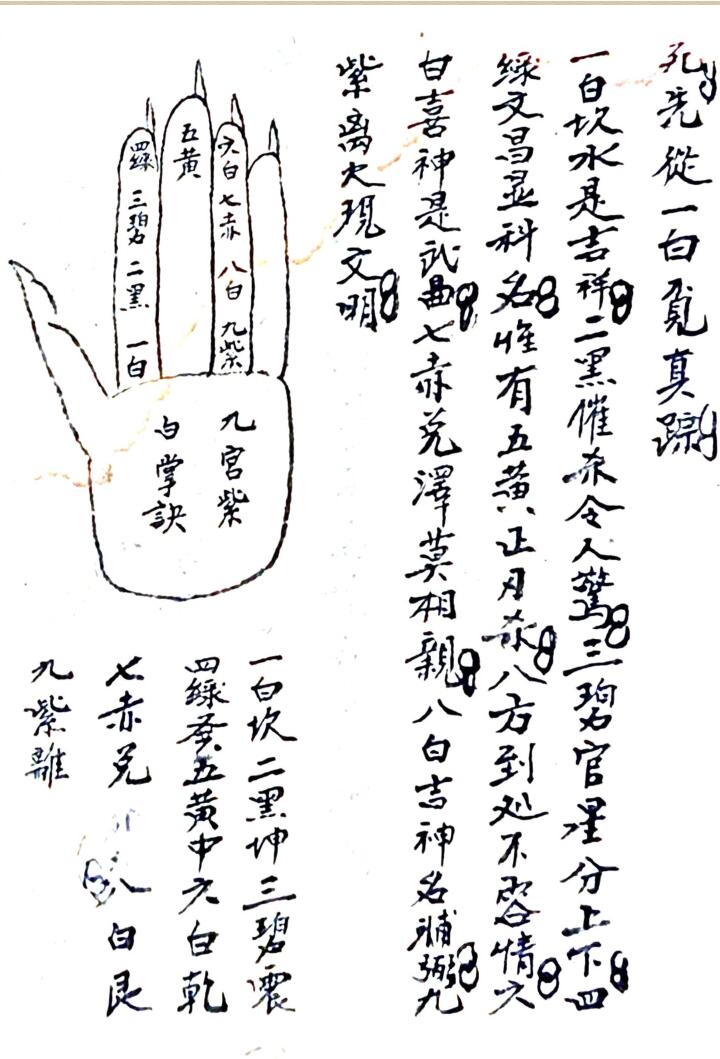 死先從一白覓真蹤
一白坎水是吉祥二黑催杀令人驚三碧官星分上下四
綠文昌显科名惟有五黄正月杀八方到处不容情六
白喜神是武曲七赤兑澤莫相親八白吉神名輔弼九
紫离火現文明
六白七赤八白九紫
五黄
四綠三碧二黑一白
九宮紫
白掌訣
一白坎二黑坤三碧震
四綠巽五黄中六白乾
七赤兑八白艮
九紫離